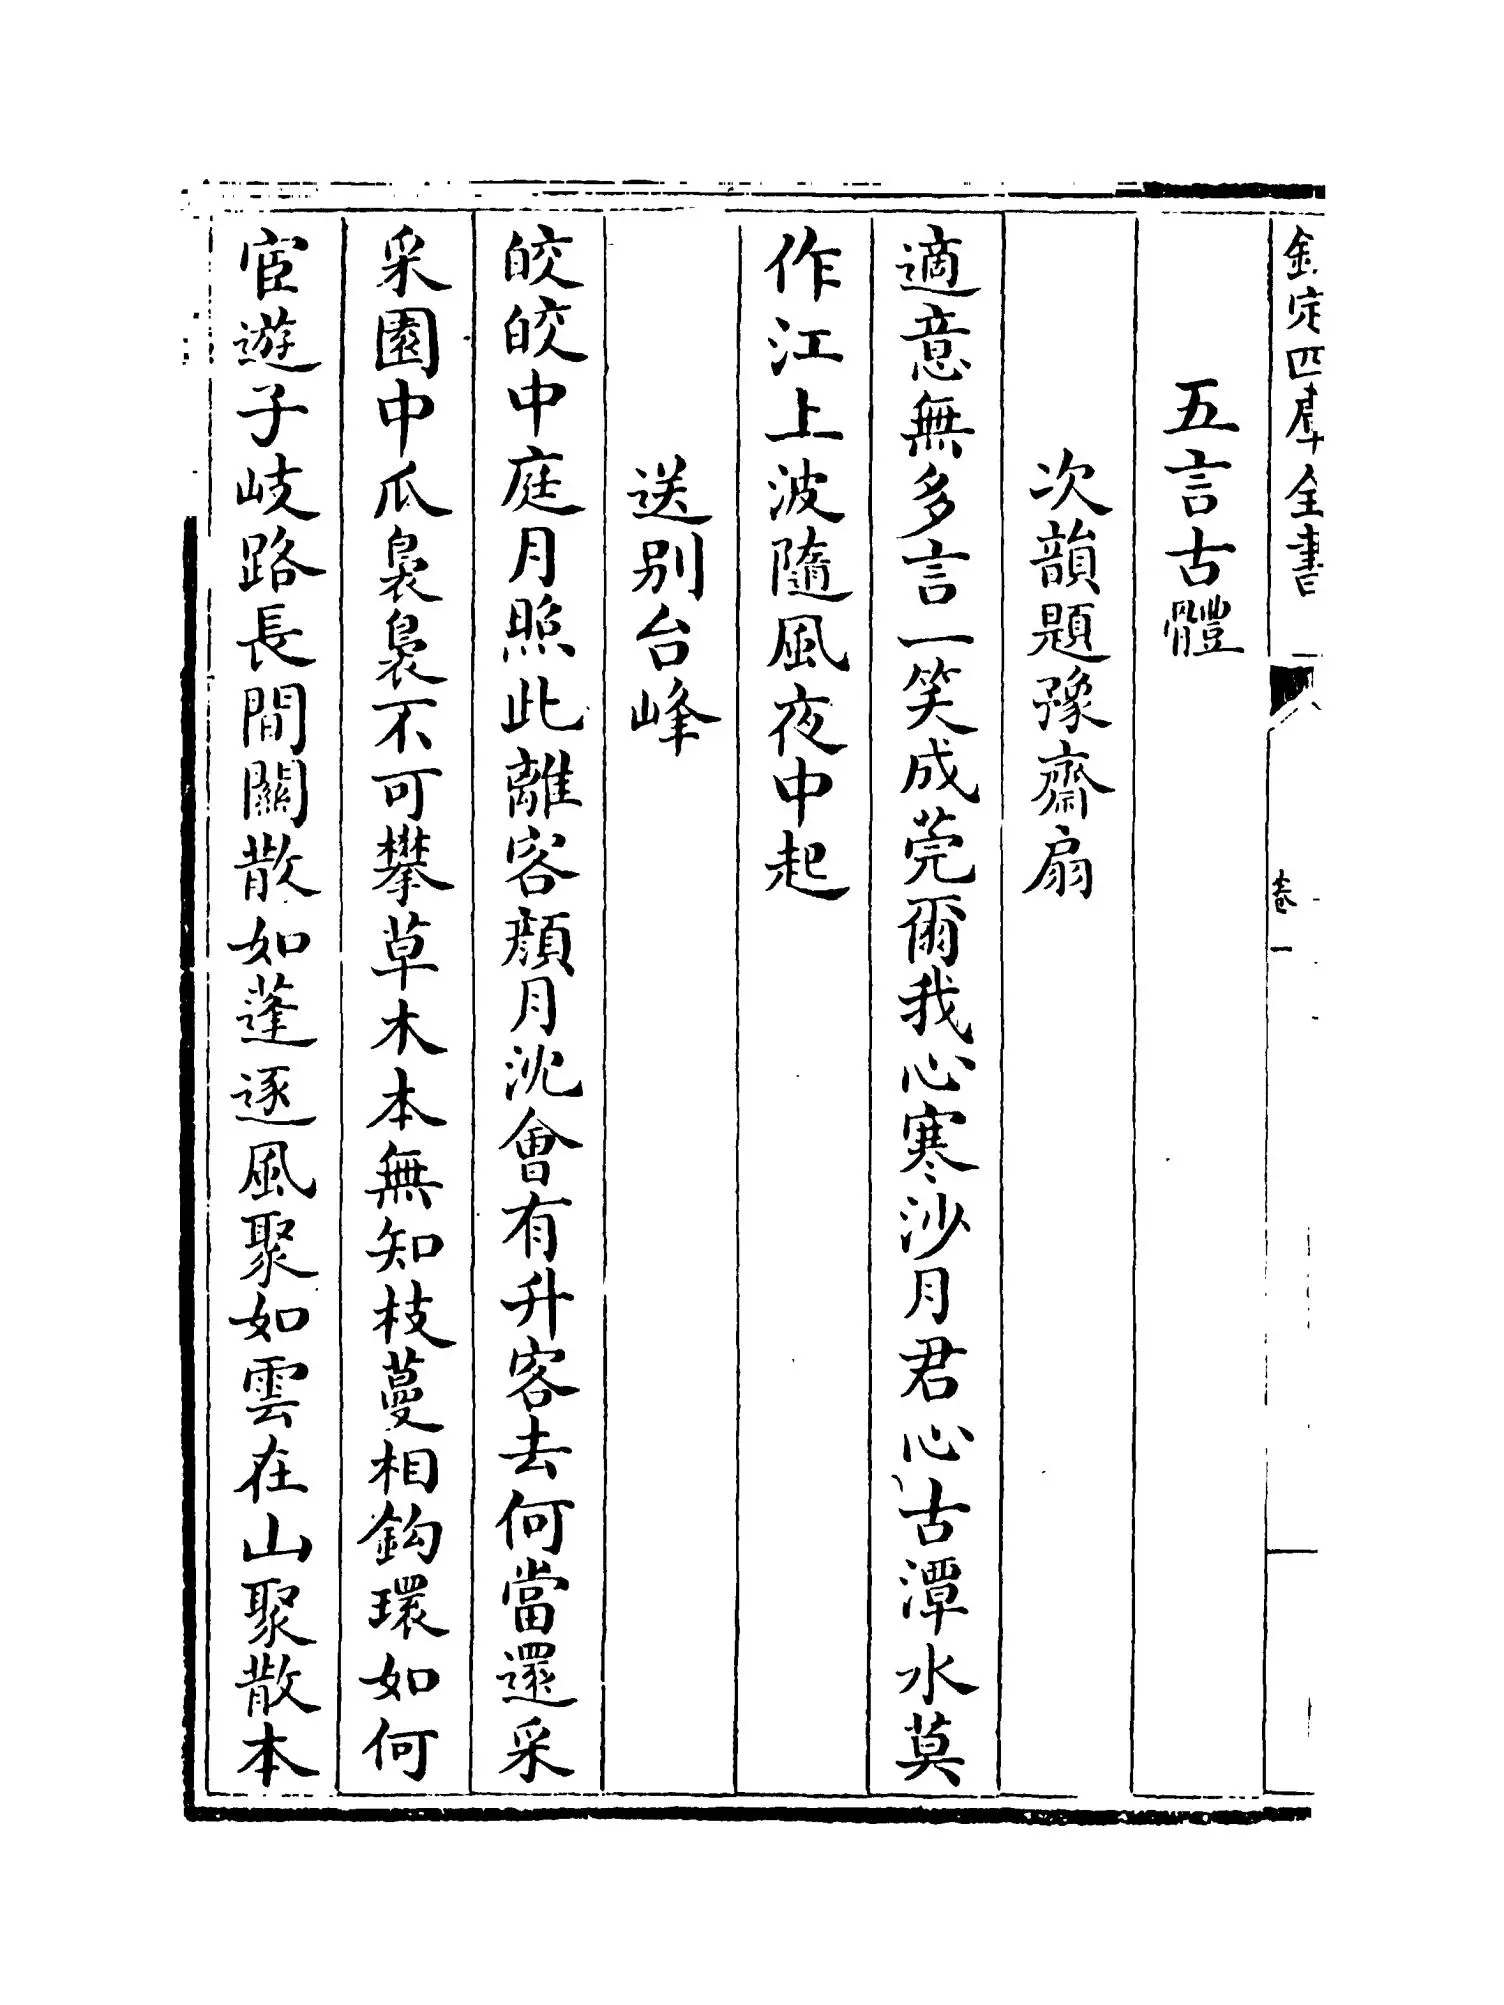 欽定四庫全書
卷一
五言古體
次韻題豫齋扇
適意無多言一笑成莞爾我心寒沙月君心古潭水莫
作江上波隨風夜中起
送别台峰
皎皎中庭月照此離客顔月沈會有升客去何當還采
采園中瓜裊裊不可攀草木本無知枝蔓相鈎環如何
宦遊子岐路長間關散如蓬逐風聚如雲在山聚散本